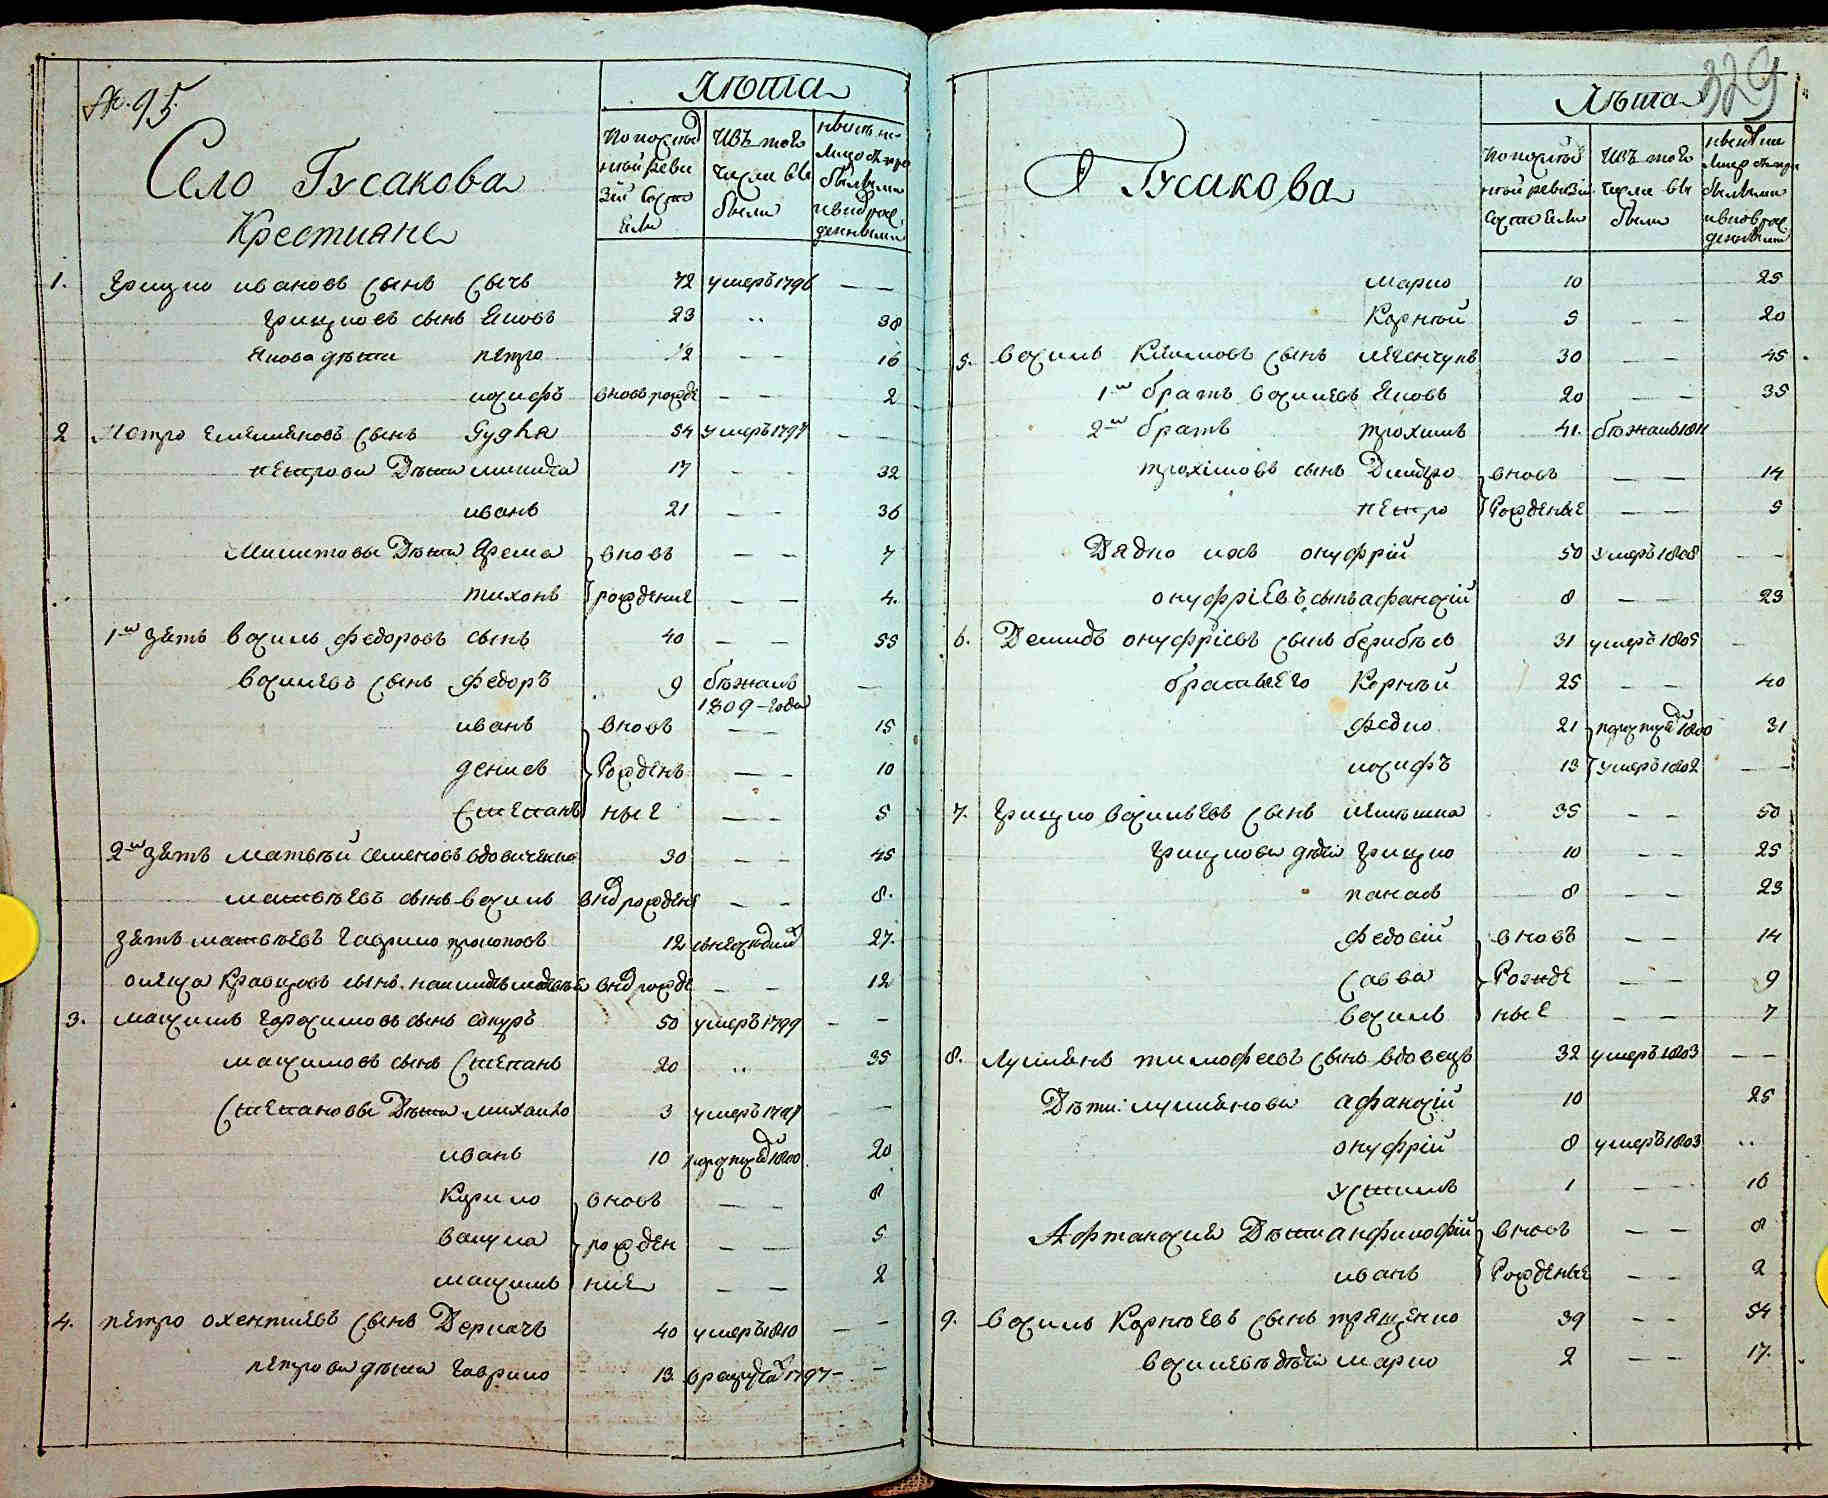 №. 95.
Село Гусакова
Крестиане
Лѣта
По послѣд ней реви зіи состо яли
Изъ того числа вы были
Нынѣ на лицо съ при былыми и внов рож денными
1. Грицко Ивановъ сынъ Сычъ 72 умеръ 1796 — —
Грицковъ сынъ Яковъ 23 .. 38
Якова дѣти Петро ½ — — 16
Иосифъ вновь рожде — — 2
2 Петро Емельяновъ сынъ Дудка 54 умеръ 1797 — —
Петрови Дѣти Микита 17 — — 32
Иванъ 21 — — 36
Микитовы Дѣти Ярема вновь — — 7
Тихонъ рождение — — 4.
1й зять Василь Федоровъ сынъ 40 — — 55
Васильевъ сынъ Федоръ 9 бѣжалъ 1809 года —
Иванъ вновь — — 15
Денисъ Рожден — — 10
Степанъ ные — — 5
2й зять Матвѣй Семеновъ вдовиченко 30 — — 45
Матвѣевъ сынъ Василь внов рожден — — 8.
зять Матвѣевъ Гаврило Прокоповъ 12 27.
Кравцовъ сынъ внов рожде — — 12
3. Максимъ Герасимовъ сынъ 50 умеръ 1799 — —
Максимовъ сынъ Степанъ 20 .. 35
Степановы Дѣти Михайло 3 умеръ 1797 —
Иванъ 10 1800 20
Кирило вновь — — 8
Вакула рожден — — 5
Максимъ ние — — 2
4. Петро Охентиевъ сынъ Деркачъ 40 умеръ 1810 — —
Петрова дѣти Гаврило 13 1797 — —
329
Гусакова
Лѣта
По послѣд ней ревизіи состояли
Изъ того числа вы были
Нынѣ на лицо съ при былыми и внов рож денными
Марко 10 25
Корнѣй 5 — — 20
5. Василь Климовъ сынъ 30 — — 45
1й братъ Васильевъ Яковъ 20 — — 35
2й братъ Трохимъ 41. бѣжалъ 1811
Трохимовъ сынъ Дмитро вновь — — 14
Петро Рожденые — — 5
Дядко ихъ Онуфрій 50 умеръ 1808 — —
Онуфріевъ сынъ Афанасій 8 — — 23
6. Демидъ Онуфріевъ сынъ 31 умеръ 1805 —
братья Его Корнѣй 25 — — 40
Федко 21 1800 31
Иосифъ 13 умеръ 1802 — —
7. Грицко Васильевъ сынъ 35 — — 50
Грицкова дѣти Грицко 10 — — 25
Панасъ 8 — — 23
Федосій вновь — — 14
Савва Рожде — — 9
Василь ные — — 7
8. Лукьянъ Тимофеевъ сынъ вдовецъ 32 умеръ 1803 — —
Дѣти: Лукьянова Афанасій 10 25
Онуфрій 8 умеръ 1803 ..
Устимъ 1 — — 16
Дѣти Анфилофій вновь — — 8
Иванъ Рожденые — — 2
9. Василь Корнѣевъ сынъ Трященко 39 — — 54
Васильевъ дѣти Марко 2 — — 17.